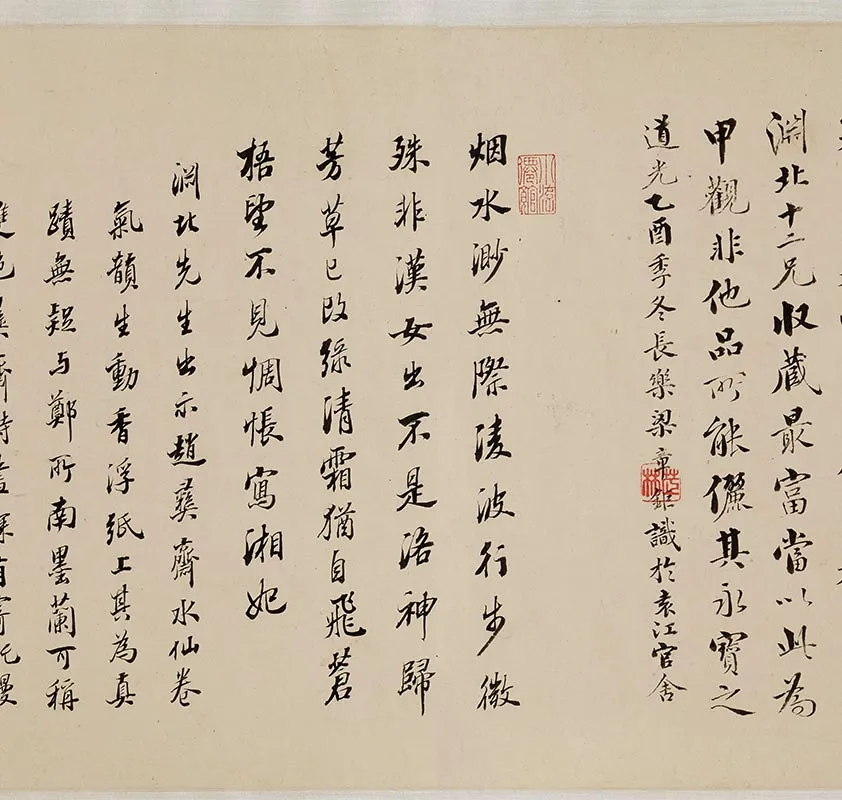 淵北十二兄收藏最富當以此為
甲觀非他品所能儷其永寶之
道光乙酉季冬長樂梁章鉅識於袁江官舍
烟水渺無際淩波行步微
殊非漢女出不是洛神歸
芳草已改綠清霜猶自飛蒼
梧望不見惆悵寫湘妃
淵北先生出示趙彝齋水仙卷
氣韻生動香浮紙上其為真
蹟無疑与鄭所南墨蘭可稱